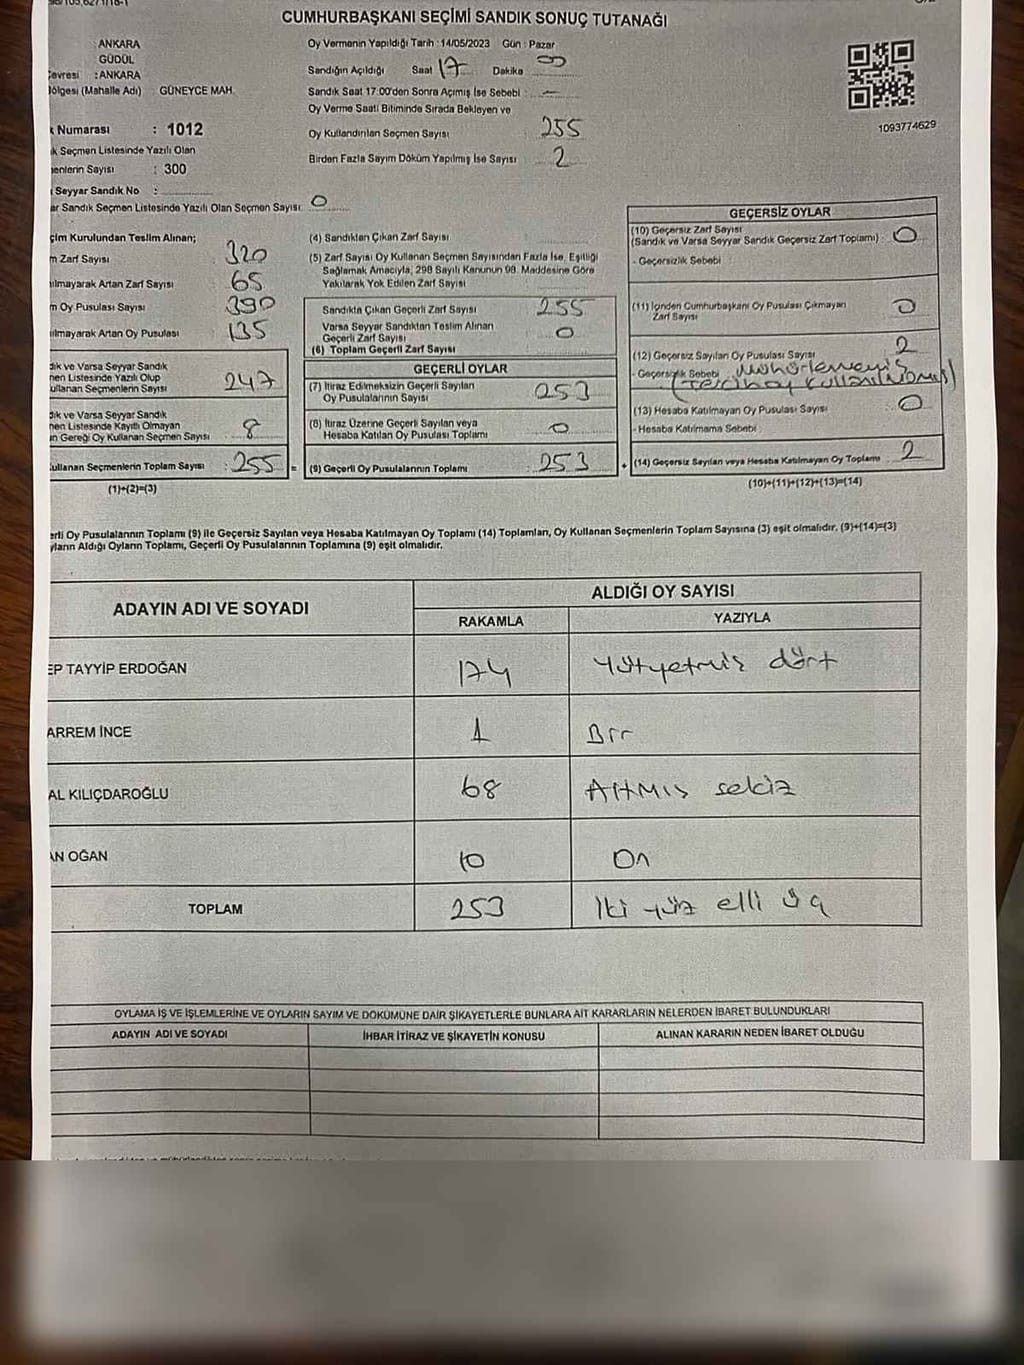 CUMHURBAŞKANI SEÇİMİ SANDIK SONUÇ TUTANAĞI
: ANKARA
GÜDÜL
Çevresi : ANKARA
Bölgesi (Mahalle Adı) : GÜNEYCE MAH.
k Numarası : 1012
k Seçmen Listesinde Yazılı Olan
menlerin Sayısı : 300
Seyyar Sandık No :
ar Sandık Seçmen Listesinde Yazılı Olan Seçmen Sayısı: 0
Oy Vermenin Yapıldığı Tarih : 14/05/2023 Gün : Pazar
Sandığın Açıldığı Saat 17 Dakika 00
Sandık Saat 17:00'den Sonra Açılmış İse Sebebi : —
Oy Verme Saati Bitiminde Sırada Bekleyen ve
Oy Kullandırılan Seçmen Sayısı 255
Birden Fazla Sayım Döküm Yapılmış İse Sayısı 2
1093774629
çim Kurulundan Teslim Alınan;
m Zarf Sayısı 320
ılmayarak Artan Zarf Sayısı : 65
m Oy Pusulası Sayısı 390
ılmayarak Artan Oy Pusulası 135
dık ve Varsa Seyyar Sandık
men Listesinde Yazılı Olup
ullanan Seçmenlerin Sayısı 247
dık ve Varsa Seyyar Sandık
men Listesinde Kayıtlı Olmayan
n Gereği Oy Kullanan Seçmen Sayısı 8
ullanan Seçmenlerin Toplam Sayısı : 255 =
(1)+(2)=(3)
(4) Sandıktan Çıkan Zarf Sayısı
(5) Zarf Sayısı Oy Kullanan Seçmen Sayısından Fazla İse, Eşitliği
Sağlamak Amacıyla, 298 Sayılı Kanunun 98. Maddesine Göre
Yakılarak Yok Edilen Zarf Sayısı
Sandıkta Çıkan Geçerli Zarf Sayısı 255
Varsa Seyyar Sandıktan Teslim Alınan
Geçerli Zarf Sayısı 0
(6) Toplam Geçerli Zarf Sayısı
GEÇERLİ OYLAR
(7) İtiraz Edilmeksizin Geçerli Sayılan
Oy Pusulalarının Sayısı 253
(8) İtiraz Üzerine Geçerli Sayılan veya
Hesaba Katılan Oy Pusulası Toplamı 0
(9) Geçerli Oy Pusulalarının Toplamı : 253 +
GEÇERSİZ OYLAR
(10) Geçersiz Zarf Sayısı
(Sandık ve Varsa Seyyar Sandık Geçersiz Zarf Toplamı) : 0
- Geçersizlik Sebebi :
(11) İçinden Cumhurbaşkanı Oy Pusulası Çıkmayan
Zarf Sayısı 0
(12) Geçersiz Sayılan Oy Pusulası Sayısı 2
- Geçersizlik Sebebi Mühürlenmemiş
(Tercih oy kullanılmamış)
(13) Hesaba Katılmayan Oy Pusulası Sayısı 0
- Hesaba Katılmama Sebebi :
(14) Geçersiz Sayılan veya Hesaba Katılmayan Oy Toplamı : 2
(10)+(11)+(12)+(13)=(14)
erli Oy Pusulalarının Toplamı (9) ile Geçersiz Sayılan veya Hesaba Katılmayan Oy Toplamı (14) Toplamları, Oy Kullanan Seçmenlerin Toplam Sayısına (3) eşit olmalıdır. (9)+(14)=(3)
yların Aldığı Oyların Toplamı, Geçerli Oy Pusulalarının Toplamına (9) eşit olmalıdır.
ADAYIN ADI VE SOYADI ALDIĞI OY SAYISI
RAKAMLA YAZIYLA
EP TAYYİP ERDOĞAN 174 Yüzyetmiş dört
ARREM İNCE 1 Bir
AL KILIÇDAROĞLU 68 Altmış sekiz
AN OĞAN 10 On
TOPLAM 253 İki yüz elli üç
OYLAMA İŞ VE İŞLEMLERİNE VE OYLARIN SAYIM VE DÖKÜMÜNE DAİR ŞİKAYETLERLE BUNLARA AİT KARARLARIN NELERDEN İBARET BULUNDUKLARI
ADAYIN ADI VE SOYADI İHBAR İTİRAZ VE ŞİKAYETİN KONUSU ALINAN KARARIN NEDEN İBARET OLDUĞU